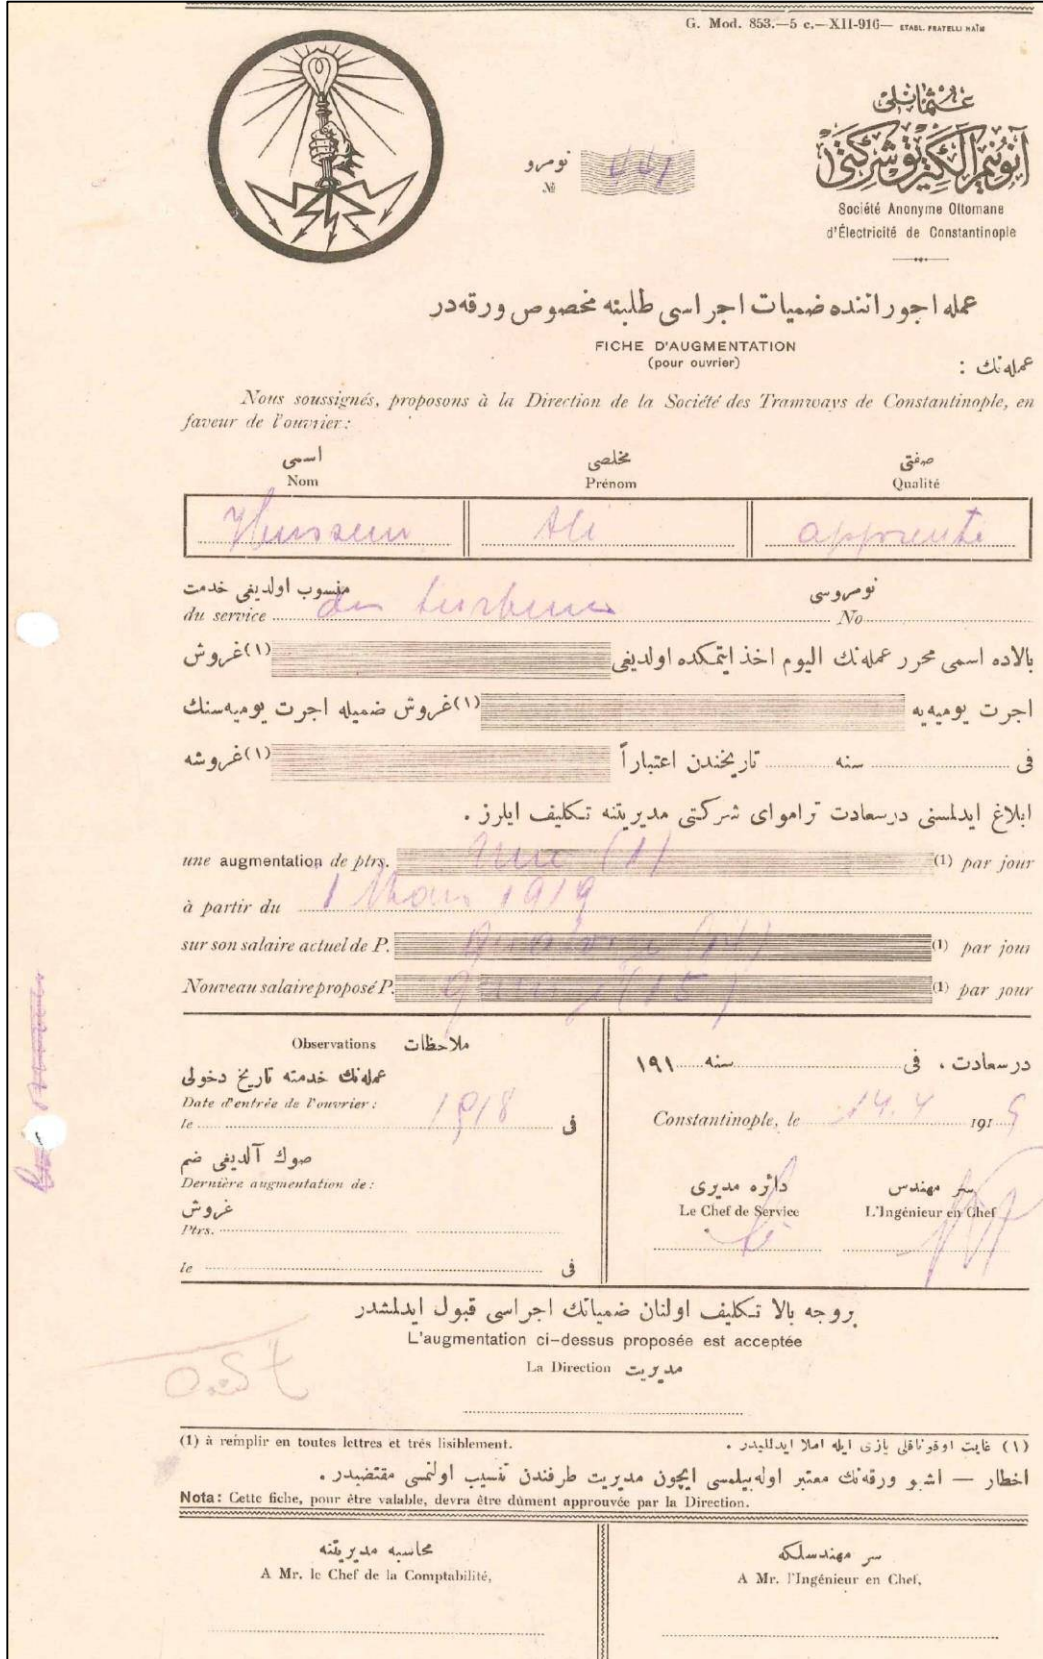 G. Mod. 853.—5 c.—XII-916— ETABL. FRATELLI HAÏM
عثمانلی
آنونیم الکتریق شرکتی
نومرو
№
Société Anonyme Ottomane
d'Électricité de Constantinople
عمله اجوراتنده ضمیات اجراسی طلبنه مخصوص ورقه‌در
FICHE D'AUGMENTATION
(pour ouvrier)
عمله‌نك :
Nous soussignés, proposons à la Direction de la Société des Tramways de Constantinople, en
faveur de l'ouvrier :
اسمی مخلصی صفتی
Nom Prénom Qualité
Hussein Ali apprenti
منسوب اولدیغی خدمت نومروسی
du service des turbines No
بالاده اسمی محرر عمله‌نك الیوم اخذ ایتمكده اولدیغی (۱) غروش
اجرت یومیه‌یه (۱) غروش ضمیله اجرت یومیه‌سنك
فی سنه تاریخندن اعتباراً (۱) غروشه
ابلاغ ایدلمسنی درسعادت تراموای شركتی مدیریتنه تكلیف ایلرز .
une augmentation de ptrs. une (1) (1) par jour
à partir du 1 Mars 1919
sur son salaire actuel de P. quatorze (14) (1) par jour
Nouveau salaire proposé P. quinze (15) (1) par jour
Observations ملاحظات
عمله‌نك خدمته تاریخ دخولی
Date d'entrée de l'ouvrier :
le 1918 فی
صوك آلدیغی ضم
Dernière augmentation de :
غروش
Ptrs.
le فی
درسعادت ، فی سنه ۱۹۱
Constantinople, le 14.4 1919
دائره مدیری سر مهندس
Le Chef de Service L'Ingénieur en Chef
بروجه بالا تكلیف اولنان ضمیاتك اجراسی قبول ایدلمشدر
L'augmentation ci-dessus proposée est acceptée
La Direction مدیریت
(1) à remplir en toutes lettres et très lisiblement. (۱) غایت اوقوناقلی یازی ایله املا ایدللیدر .
اخطار — اشبو ورقه‌نك معتبر اوله‌بیلمسی ایچون مدیریت طرفندن تنسیب اولنمسی مقتضیدر .
Nota : Cette fiche, pour être valable, devra être dûment approuvée par la Direction.
محاسبه مدیریتنه سر مهندسلكه
A Mr. le Chef de la Comptabilité, A Mr. l'Ingénieur en Chef,